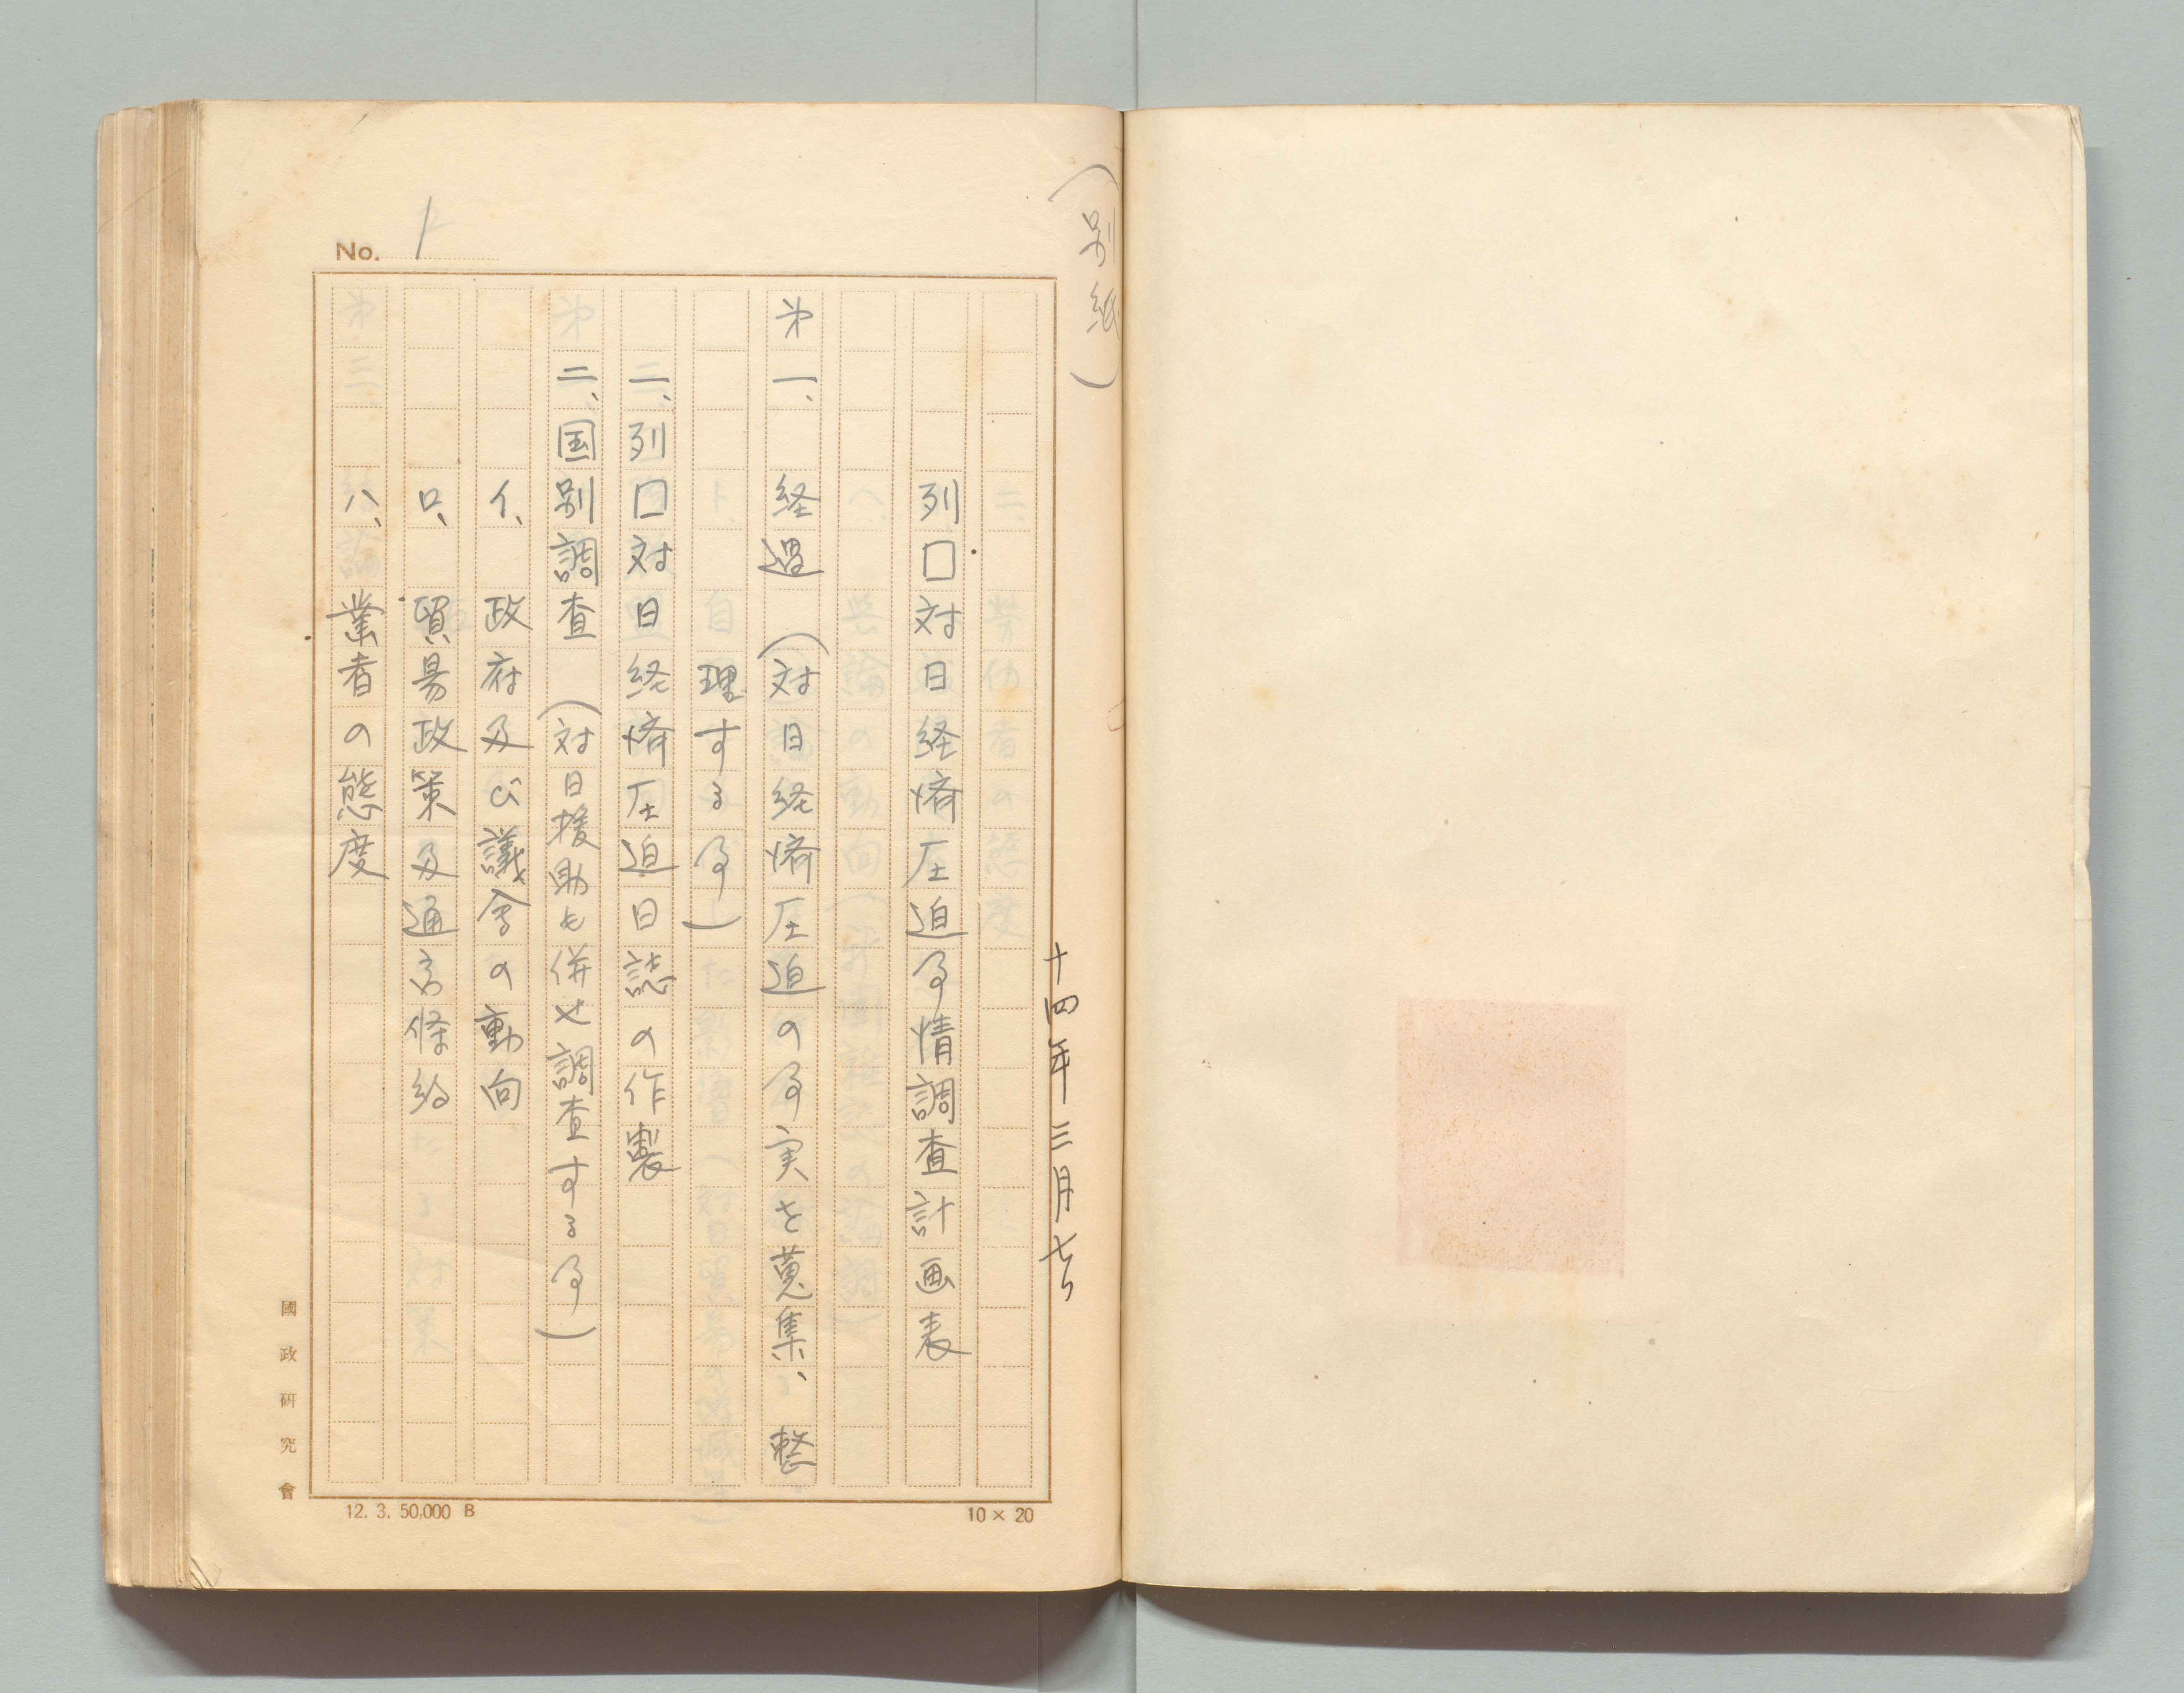 (別紙)
十四年三月七日
列囗対日経済圧迫事情調査計画表
第一、経過 (対日経済圧迫の事実を蒐集、整
理する事)
二、列囗対日経済圧迫日誌の作製
第二、国別調査 (対日援助も併せ調査する事)
イ、政府及び議会の動向
ロ、貿易政策及通商條約
ハ、業者の態度
No. 1
國政研究會
12. 3. 50,000 B
10 × 20